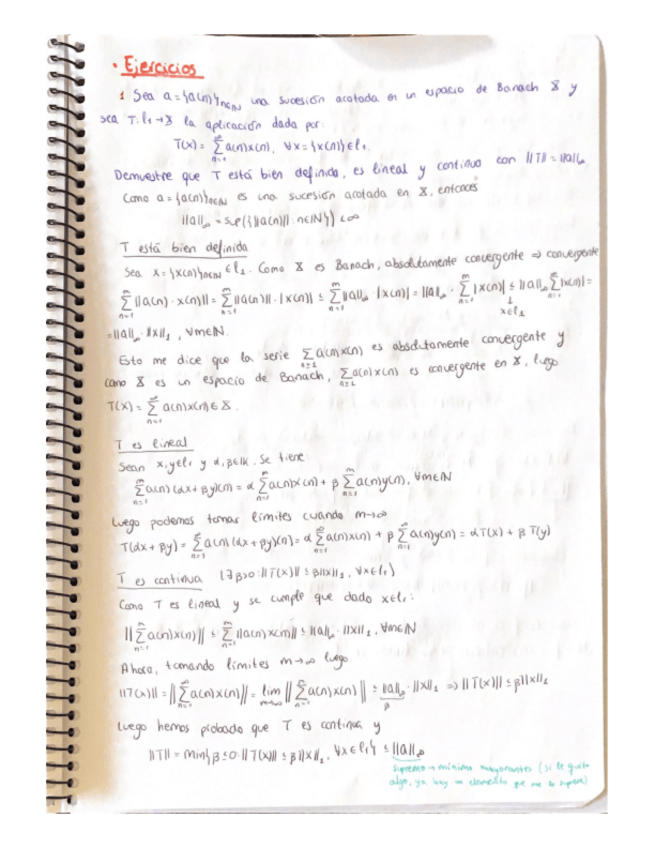 · Ejercicios
1 Sea a = {a(n)}n∈ℕ una sucesión acotada en un espacio de Banach X y
sea T: l₁→X la aplicación dada por:
T(x) = ∑_{n=1}^∞ a(n)x(n), ∀x={x(n)}∈l₁.
Demuestre que T está bien definida, es lineal y continua con ||T|| = ||a||∞
Como a = {a(n)}n∈ℕ es una sucesión acotada en X, entonces
||a||∞ = sup({||a(n)|| n∈ℕ}) < ∞
T está bien definida
Sea x = {x(n)}n∈ℕ ∈ l₁. Como X es Banach, absolutamente convergente ⇒ convergente
∑_{n=1}^m ||a(n)·x(n)|| = ∑_{n=1}^m ||a(n)||·|x(n)| ≤ ∑_{n=1}^m ||a||∞·|x(n)| = ||a||∞·∑_{n=1}^m |x(n)| ≤ ||a||∞ ∑_{n=1}^∞ |x(n)| =
↓
x∈l₁
= ||a||∞·||x||₁, ∀m∈ℕ.
Esto me dice que la serie ∑_{n≥1} a(n)x(n) es absolutamente convergente y
como X es un espacio de Banach, ∑_{n≥1} a(n)x(n) es convergente en X, luego
T(x) = ∑_{n=1}^∞ a(n)x(n) ∈ X.
T es lineal
Sean x,y∈l₁ y α,β∈𝕂. Se tiene:
∑_{n=1}^m a(n)(αx+βy)(n) = α ∑_{n=1}^m a(n)x(n) + β ∑_{n=1}^m a(n)y(n), ∀m∈ℕ
Luego podemos tomar límites cuando m→∞
T(αx+βy) = ∑_{n=1}^∞ a(n)(αx+βy)(n) = α ∑_{n=1}^∞ a(n)x(n) + β ∑_{n=1}^∞ a(n)y(n) = αT(x) + βT(y)
T es continua (∃β>0: ||T(x)|| ≤ β||x||₁, ∀x∈l₁)
Como T es lineal y se cumple que dado x∈l₁:
||∑_{n=1}^m a(n)x(n)|| ≤ ∑_{n=1}^m ||a(n)x(n)|| ≤ ||a||∞·||x||₁, ∀m∈ℕ
Ahora, tomando límites m→∞ luego
||T(x)|| = ||∑_{n=1}^∞ a(n)x(n)|| = lim_{m→∞} ||∑_{n=1}^m a(n)x(n)|| ≤ ||a||∞·||x||₁ ⇒ ||T(x)|| ≤ β||x||₁
β
Luego hemos probado que T es continua y
||T|| = min{β≤0: ||T(x)|| ≤ β||x||₁, ∀x∈l₁} ≤ ||a||∞
supremo → mínimo mayorantes (si le quito
algo, ya hay un elemento que me lo supera)